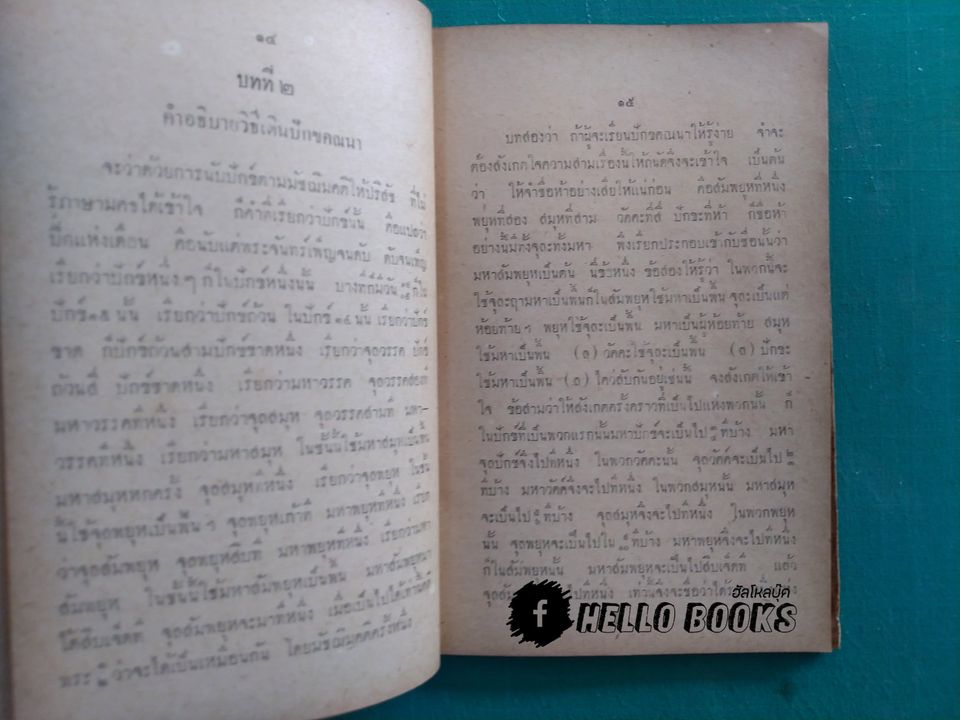 ๑๔
บทที่ ๒
คำอธิบายวิธีเดินปักขคณนา
จะว่าด้วยการนับปักษ์ตามมัชฌิมคติให้บริสัช ที่ไม่
รู้ภาษามคธได้เข้าใจ ก็คำที่เรียกว่าปักษ์นั้น คือแปลว่า
ปีกแห่งเดือน คือนับแต่พระจันทร์เพ็ญจนดับ ดับจนเพ็ญ
เรียกว่าปักษ์หนึ่ง ๆ ก็ในปักษ์หนึ่งนั้น บางทีก็มีวัน ก็ใน
ปักษ์ ๑๕ นั้น เรียกว่าปักษ์ถ้วน ในปักษ์ ๑๔ นั้น เรียกว่าปักษ์
ขาด ก็ปักษ์ถ้วนสามปักษ์ขาดหนึ่ง เรียกว่าจุลวรรค ปักษ์
ถ้วนสี่ ปักษ์ขาดหนึ่ง เรียกว่ามหาวรรค จุลวรรคสองที่
มหาวรรคที่หนึ่ง เรียกว่าจุลสมุห จุลวรรคสามที่ มหา–
วรรคที่หนึ่ง เรียกว่ามหาสมุห ในชั้นนี้ใช้มหาสมุหเป็นพื้น
มหาสมุหหกครั้ง จุลสมุหหนึ่ง เรียกว่าจุลพยุห ในชั้น
นี้ใช้จุลพยุหเป็นพื้น ฯ จุลพยุหเก้าที่ มหาพยุหที่หนึ่ง เรียก
ว่าจุลสัมพยุห จุลพยุหสิบที่ มหาพยุหที่หนึ่ง เรียกว่ามหา
สัมพยุห ในชั้นนี้ใช้มหาสัมพยุหเป็นพื้น มหาสัมพยุหมา
ได้สิบเจ็ดที่ จุลสัมพยุหจะมาที่หนึ่ง เมื่อเป็นไปได้เท่านี้แล้ว
ว่าจะได้เป็นเหมือนกัน โดยมัชฌิมคติครั้งหนึ่ง
๑๕
บทสองว่า ถ้าผู้จะเรียนปักขคณนาให้รู้ง่าย จำจะ
ต้องสังเกตใจความสามเรื่องนี้ให้ถนัดจึงจะเข้าใจ เป็นต้น
ว่า ให้จำชื่อห้าอย่างเสียให้แน่ก่อน คือสัมพยุหที่หนึ่ง
พยุหที่สอง สมุหที่สาม วัคคะที่สี่ ปักขะที่ห้า ก็ชื่อห้า
อย่างนี้มีทั้งจุละทั้งมหา พึงเรียกประกอบเข้ากับชื่อนั้นว่า
มหาสัมพยุหเป็นต้น นี่ข้อหนึ่ง ข้อสองให้รู้ว่า ในพวกนี้จะ
ใช้จุละฤามหาเป็นพื้นก็ในสัมพยุหใช้มหาเป็นพื้น จุละเป็นแต่
ห้อยท้าย ฯ พยุหใช้จุละเป็นพื้น มหาเป็นผู้ห้อยท้าย สมุห
ใช้มหาเป็นพื้น (๑) วัคคะใช้จุละเป็นพื้น (๑) ปักขะ
ใช้มหาเป็นพื้น (๑) ไคว่สับกันอยู่เช่นนี้ จงสังเกตให้เข้า
ใจ ข้อสามว่าให้สังเกตครั้งคราวที่เป็นไปแห่งพวกนั้น ก็
ในปักษ์ที่เป็นพวกแรกนั้นมหาปักษ์จะเป็นไป ที่บ้าง มหา
จุลปักษ์จึงไปที่หนึ่ง ในพวกวัคคะนั้น จุลวัคค์จะเป็นไป
ที่บ้าง มหาวัคค์จึงจะไปที่หนึ่ง ในพวกสมุหนั้น มหาสมุห
จะเป็นไป ที่บ้าง จุลสมุหจึงจะไปที่หนึ่ง ในพวกพยุห
นั้น จุลพยุหจะเป็นไปใน ที่บ้าง มหาพยุหจึงจะไปที่หนึ่ง
ก็ในสัมพยุหนั้น มหาสัมพยุหจะเป็นไปสิบเจ็ดที่ แล้ว
จุลสัม ที่หนึ่ง เท่านี้จึงจะชื่อว่าได้
ฮัลโหลบุ๊ค
HELLO BOOKS